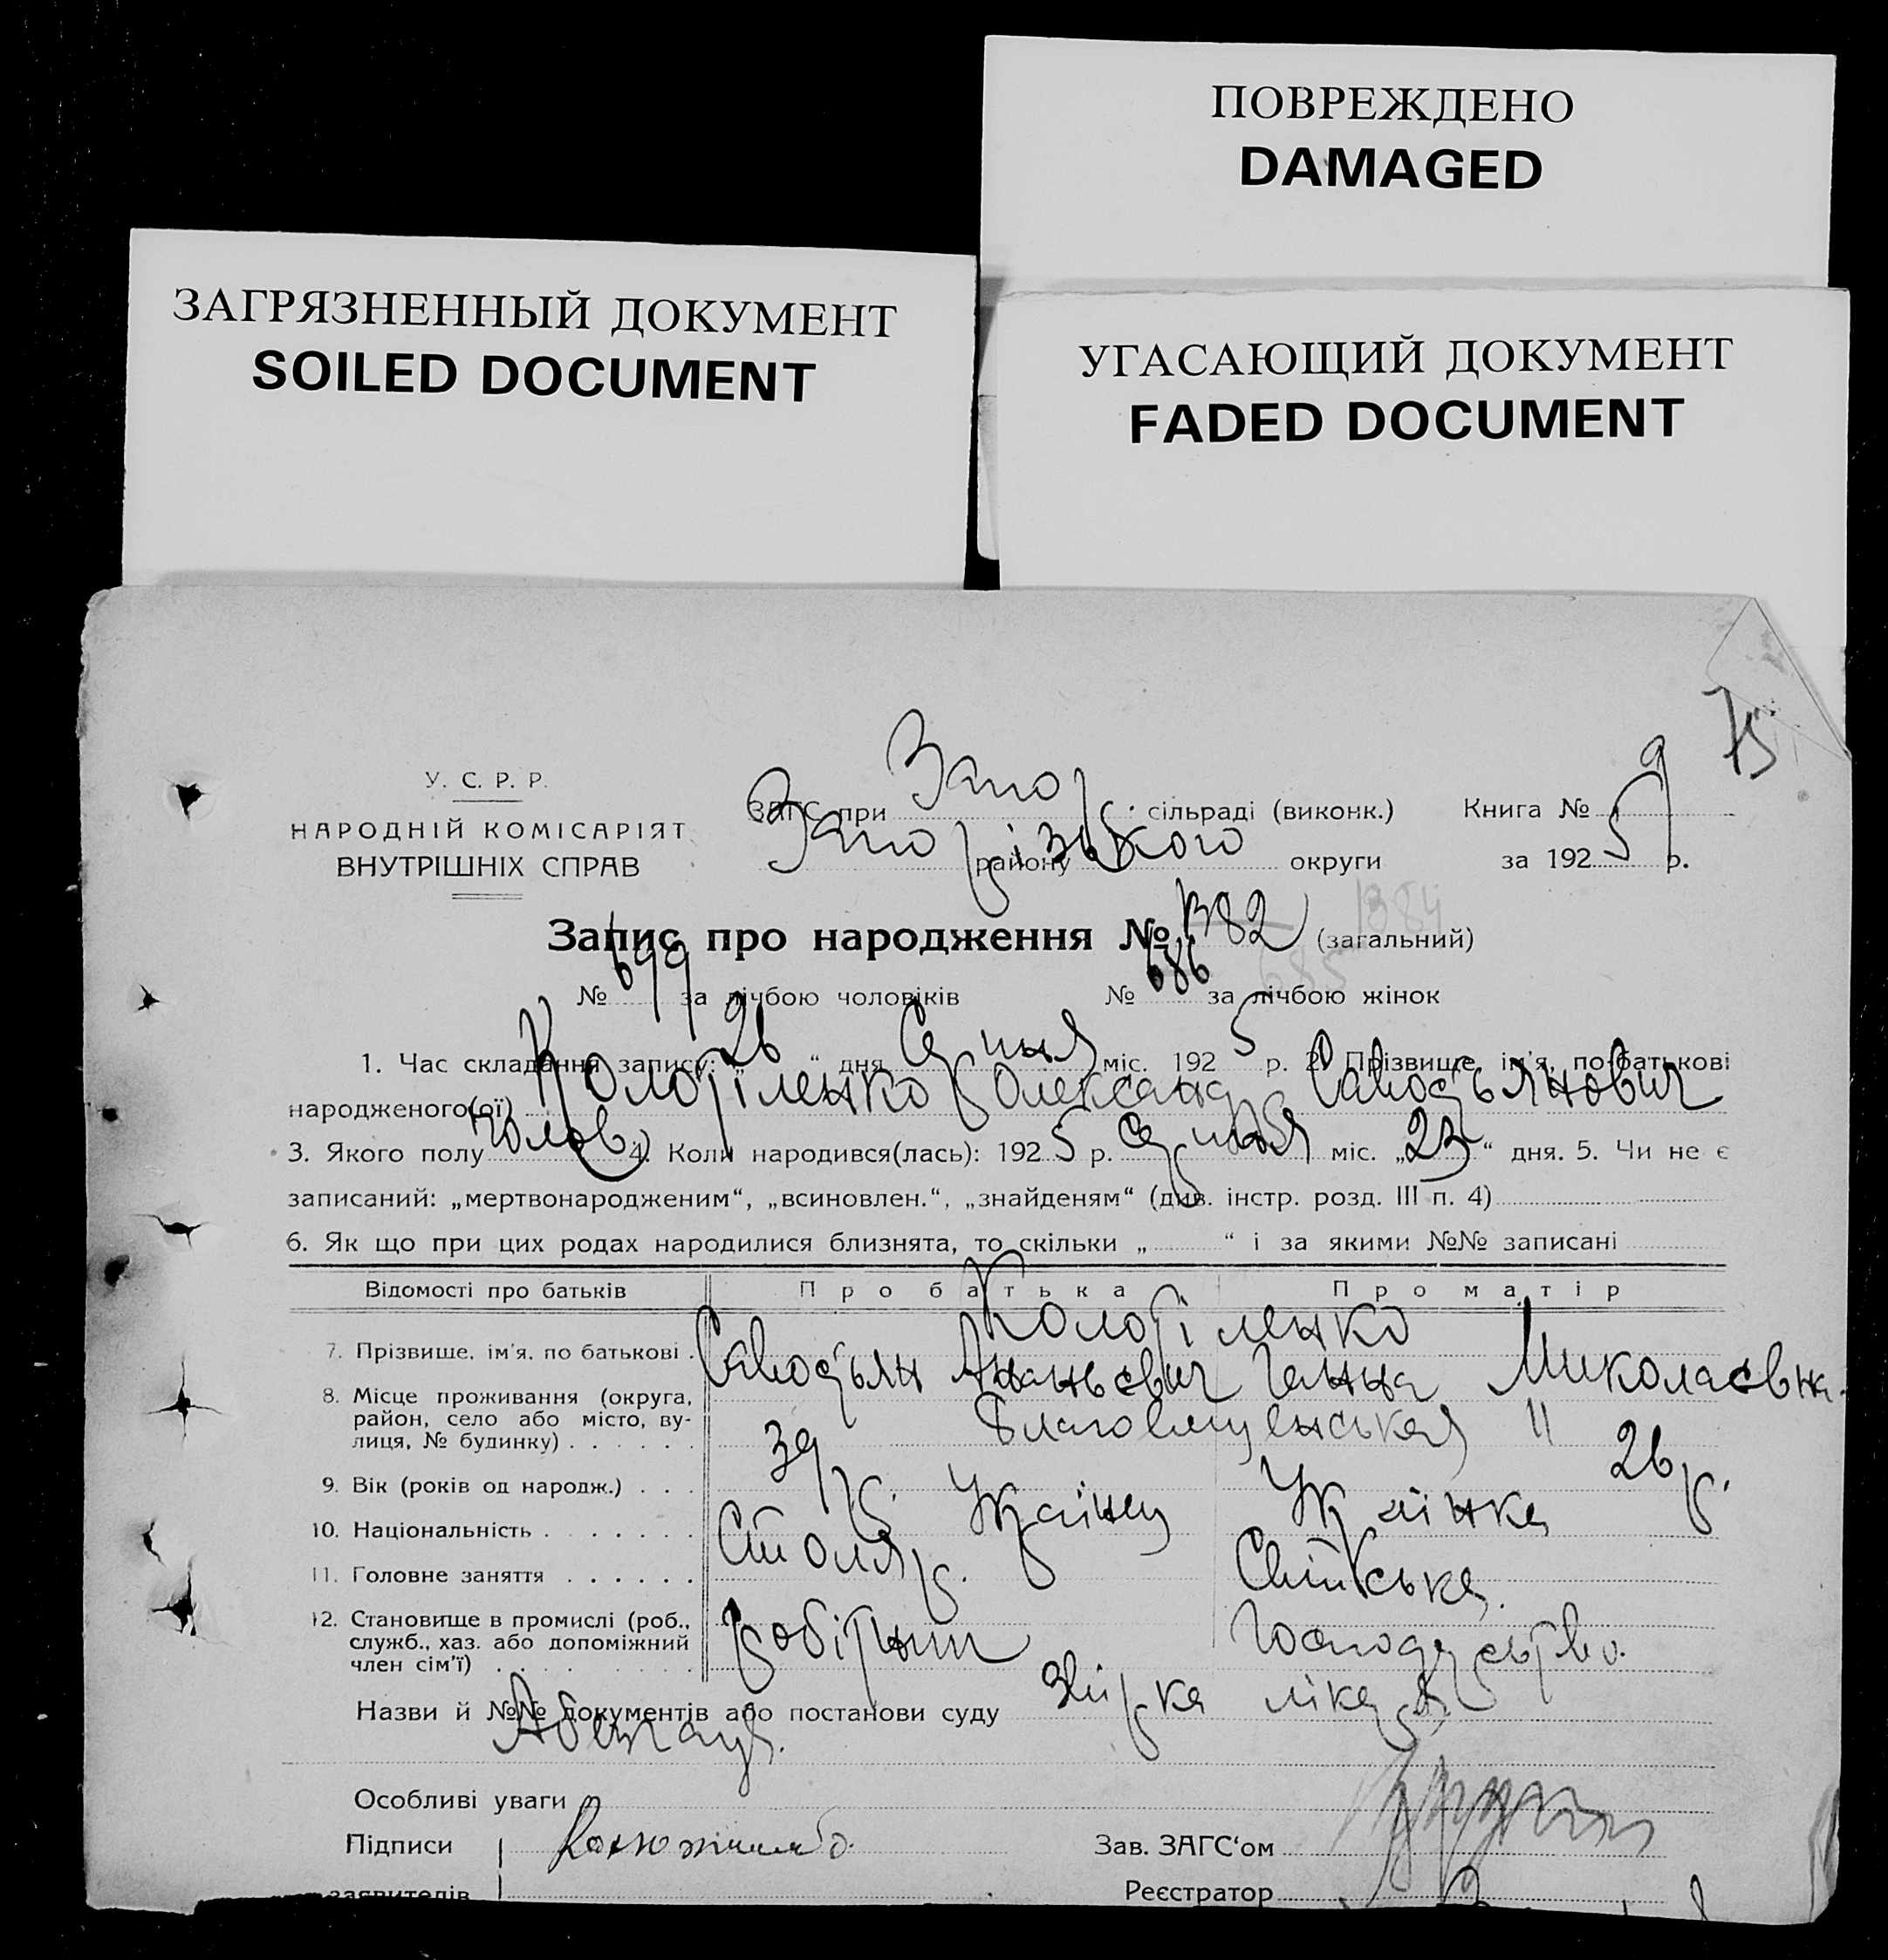 ПОВРЕЖДЕНО
DAMAGED
ЗАГРЯЗНЕННЫЙ ДОКУМЕНТ
SOILED DOCUMENT
УГАСАЮЩИЙ ДОКУМЕНТ
FADED DOCUMENT
75
У. С. Р. Р.
НАРОДНІЙ КОМІСАРІЯТ
ВНУТРІШНІХ СПРАВ
ЗАГС при Запор. сільраді (виконк.) Книга № 9
Запорізького району округи за 1925 р.
Запис про народження № 1382 (загальний) 1384
№ 699 за лічбою чоловіків № 686 за лічбою жінок 685
1. Час складання запису: „26“ дня Серпня міс. 1925 р. 2. Прізвище, ім'я, по-батькові
народженого(ої) Колотіленко Олександр Савостьянович
3. Якого полу чолов. 4. Коли народився(лась): 1925 р. Серпня міс. „23“ дня. 5. Чи не є
записаний: „мертвонародженим“, „всиновлен.“, „знайденям“ (див. інстр. розд. III п. 4)
6. Як що при цих родах народилися близнята, то скільки „ “ і за якими №№ записані
Відомості про батьків Про батька Про матір
Колотіленко
7. Прізвище, ім'я, по батькові . Савостьян Ананьєвич Ганна Миколаєвна
8. Місце проживання (округа, район, село або місто, вулиця, № будинку) . . . . . . Благовищенськая 11
9. Вік (років од народж.) . . . 39 р. 26 р.
10. Національність . . . . . . . Українец Українка
11. Головне заняття . . . . . . Столяр. Свійське
12. Становище в промислі (роб., служб., хаз. або допоміжний член сім'ї) . . робітник Господарство.
Назви й №№ документів або постанови суду Звірка лікаря
Особливі уваги
Підписи
заявителів
Зав. ЗАГС‘ом
Реєстратор